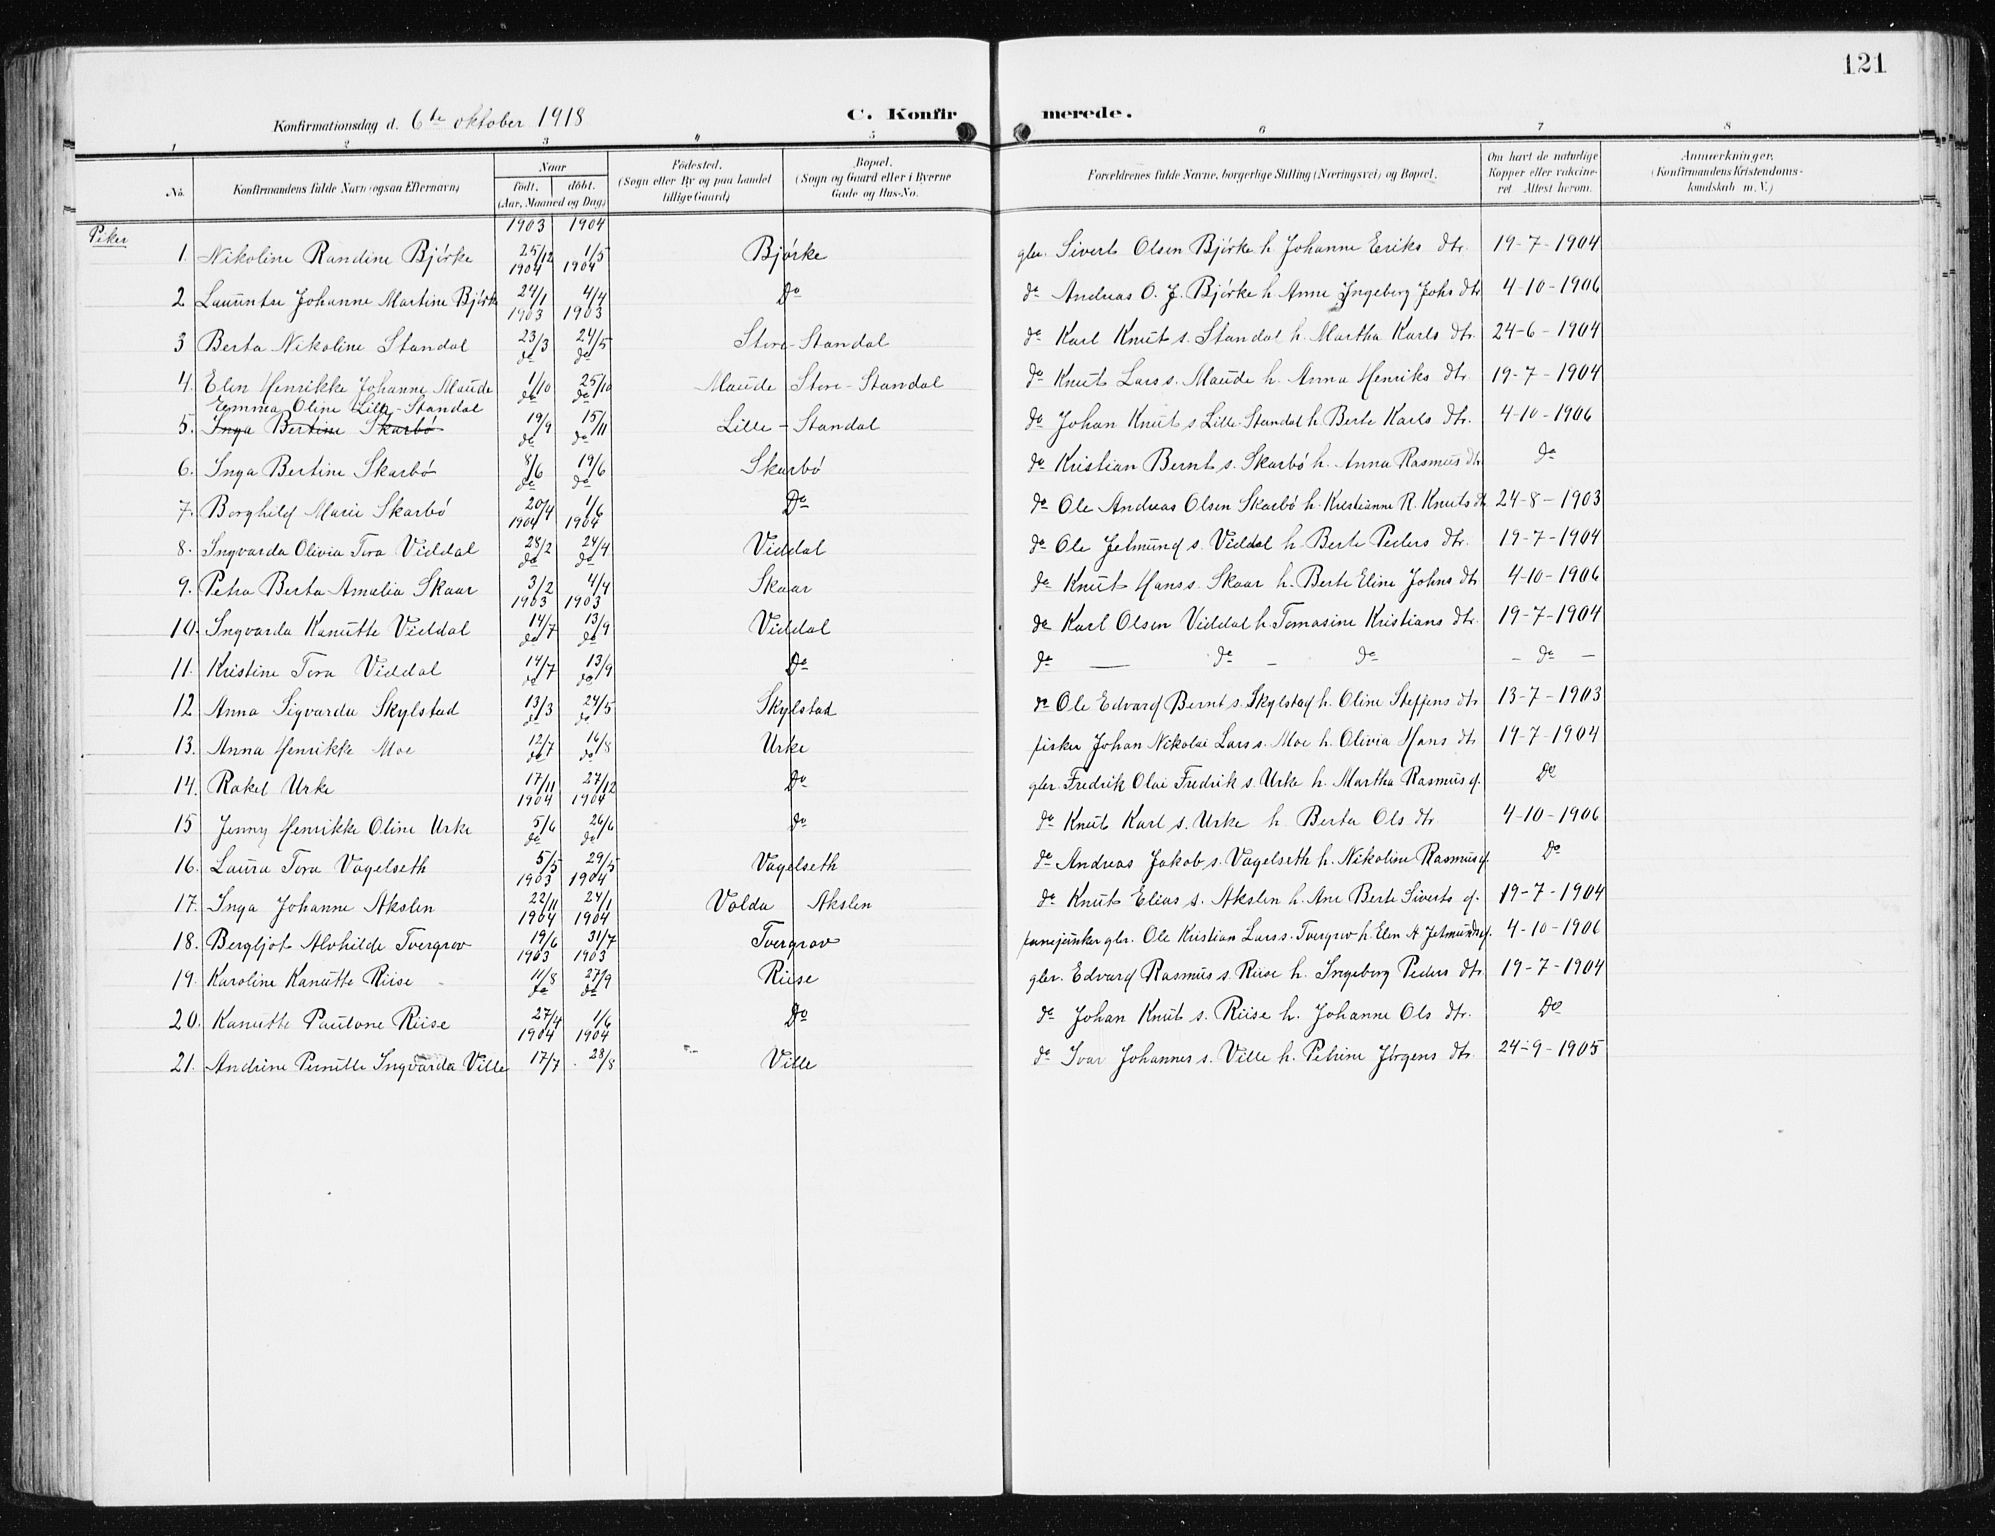 121
Konfirmationsdag d. 6te oktober 1918 C. Konfirmerede.
1 2 3 4 5 6 7 8
No. Konfirmandens fulde Navn (ogsaa Efternavn) Naar født. døbt. (Aar, Maaned og Dag) Fødested. (Sogn eller By og paa Landet tillige Gaard) Bopæl. (Sogn og Gaard eller i Byerne Gade og Hus-No. Forældrenes fulde Navne, borgerlige Stilling (Næringsvei) og Bopæl. Om havt de naturlige Kopper eller vakcineret. Attest herom. Anmærkninger. (Konfirmandens Kristendomskundskab m. V.)
Piker 1903 1904
1. Nikoline Randine Bjørke 25/12 1/5 Bjørke gbr. Sivert Olsen Bjørke h. Johanne Eriks dtr. 19-7-1904
1904 1904
2 Johanne Martine Bjørke 24/1 4/4 Do do Andreas O. J. Bjørke h. Anne Ingeberg Johs dtr 4-10-1906
1903 1903
3 Berta Nikoline Standal 23/3 24/5 Store-Standal do Karl Knut s. Standal h. Martha Karls dtr. 24-6-1904
do do
4. Elen Henrikke Johanne Maude 1/10 25/10 Maude Store-Standal do Knut Lars s. Maude h. Anna Henriks dtr. 19-7-1904
do do
Emma Oline Lille-Standal
5. Inga Bertine Skarbø 19/9 15/11 Lille-Standal do Johan Knut s Lille-Standal h. Berte Karls dtr. 4-10-1906
do do
6. Inga Bertine Skarbø 8/6 19/6 Skarbø do Kristian Bernt s. Skarbø h. Anna Rasmus dtr. do
do do
7. Borghild Marie Skarbø 20/4 1/6 Do do Ole Andreas Olsen Skarbø h. Kristianne R. Knuts dtr 24-8-1903
1904 1904
8. Ingvarda Olivia Tora Viddal 28/2 24/4 Viddal do Ole Jetmund s. Viddal h. Berte Peders dtr. 19-7-1904
do do
9. Petra Berta Amalia Skaar 3/2 4/4 Skaar do Knut Hans s. Skaar h. Berte Eline Johns dtr 4-10-1906
1903 1903
10. Ingvarda Kanutte Viddal 14/7 13/9 Viddal do Karl Olsen Viddal h. Tomasine Kristians dtr. 19-7-1904
do do
11. Kristine Tora Viddal 14/7 13/9 Do do — do - do - do -
do do
12 Anna Sigvarda Skylstad 13/3 24/5 Skylstad do Ole Edvard Bernt s. Skylstad h. Oline Steffens dtr 13-7-1903
do do
13. Anna Henrikke Moe 12/7 16/8 Urke fisker Johan Nikolai Lars s. Moe h. Olivia Hans dtr 19-7-1904
do do
14. Rakel Urke 17/11 27/12 Do gbr. Fredrik Olai Fredrik s. Urke h. Martha Rasmus d. Do
1904 1904
15 Jenny Henrikke Oline Urke 5/6 26/6 do do Knut Karl s. Urke h Berta Ols dtr 4-10-1906
do do
16. Laura Tora Vagelseth 5/5 29/5 Vagelseth do Andreas Jakob s. Vagelseth h. Nikoline Rasmus d. Do
1903 1904
17. Inga Johanne Akslen 22/11 24/1 Volda Akslen do Knut Elias s. Akslen h. Ane Berte Siverts d. 19-7-1904
1904 1904
18. Bergljot Alvhilde Tvergrov 19/6 31/7 Tvergrov gbr. Ole Kristian Lars s. Tvergrov h. Elen A Jetmunds d. 4-10-1906
1903 1903
19. Karoline Kanutte Riise 11/8 27/9 Riise gbr. Edvard Rasmus s. Riise h. Ingeborg Peders dtr 19-7-1904
do do
20. Kanutte Paulone Riise 27/4 1/6 Do do Johan Knut s. Riise h. Johanne Ols dtr. Do
1904 1904
21. Andrine Pernille Ingvarda Ville 17/7 28/8 Ville do Ivar Johannes s. Ville h. Petrine Jørgens dtr. 24-9-1905